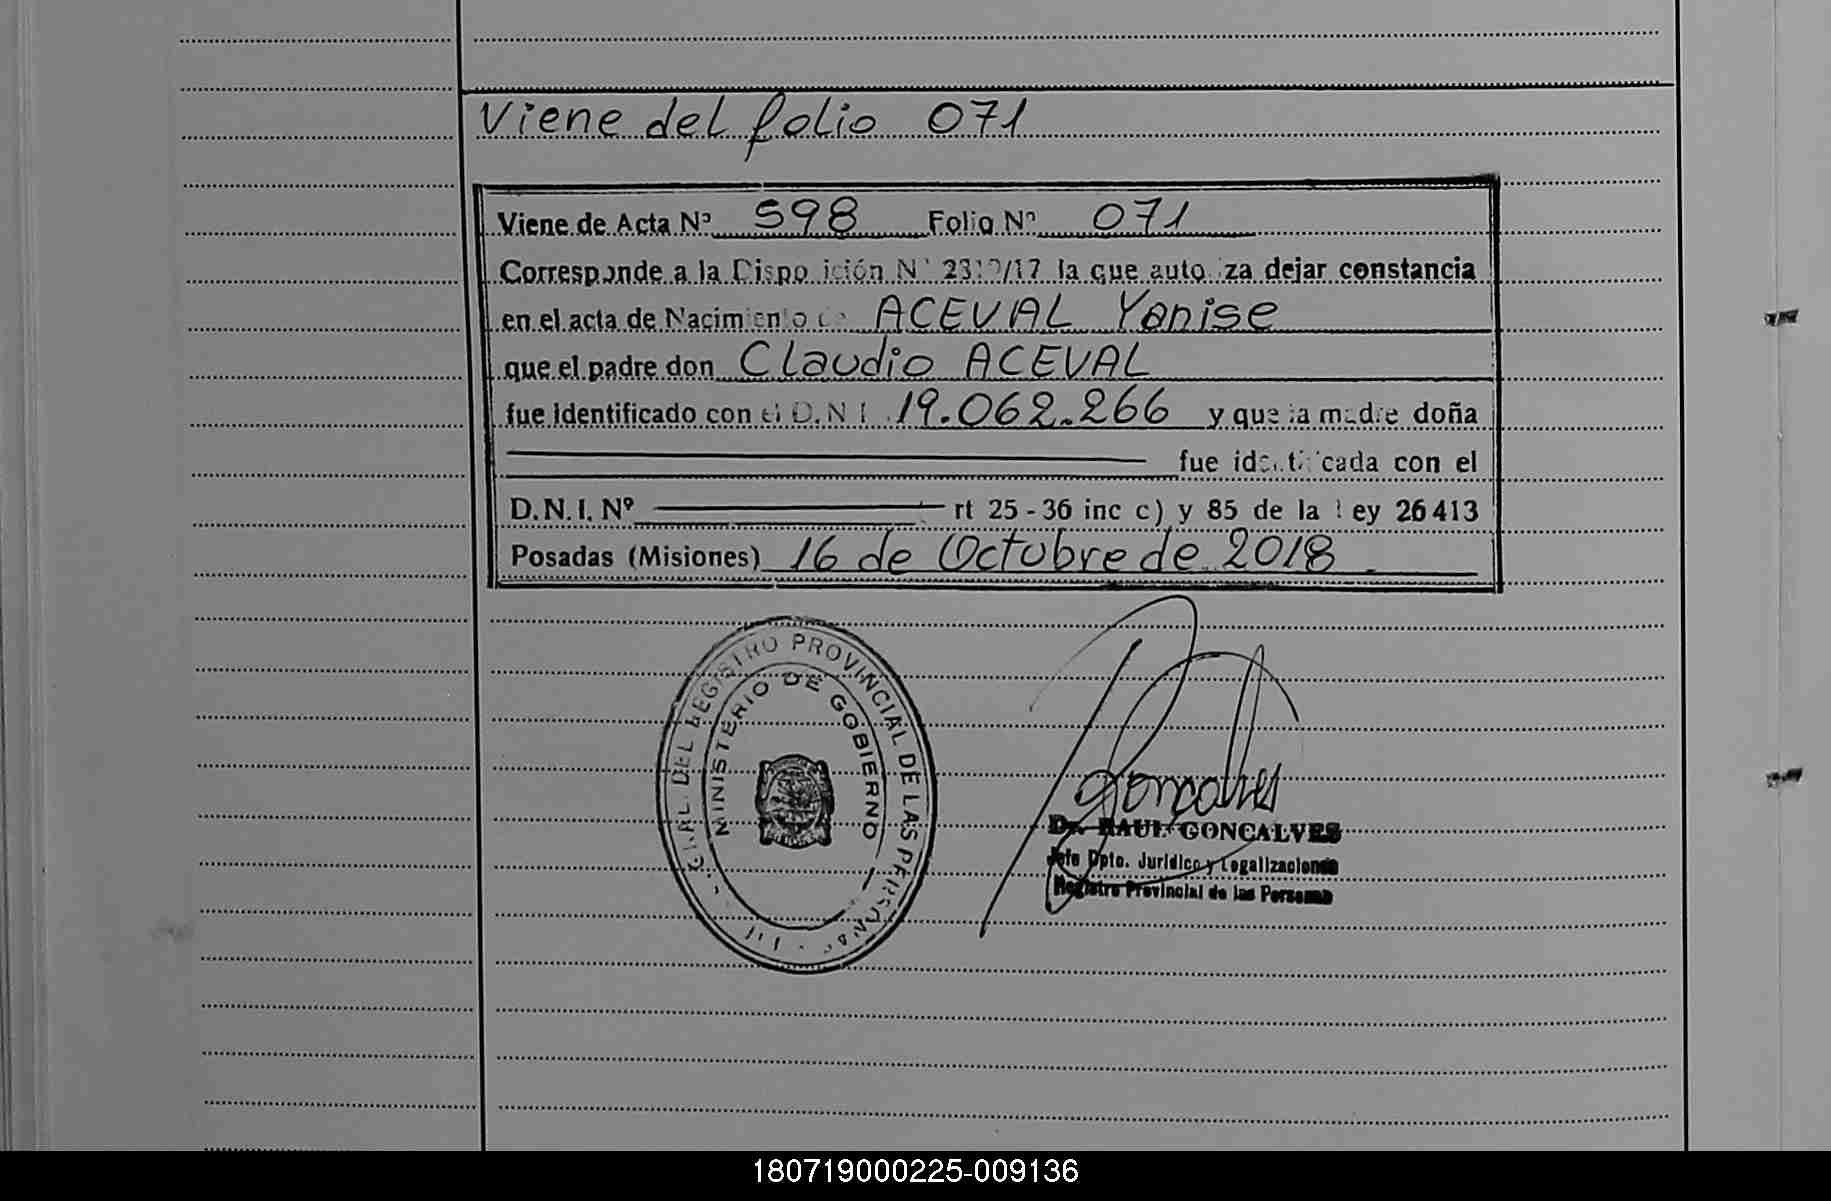 Viene del folio 071
Viene de Acta Nº 598 Folio Nº 071
Corresponde a la Disposición Nº /17 la que autoriza dejar constancia
en el acta de Nacimiento de ACEVAL Yanise
que el padre don Claudio ACEVAL
fue identificado con el D.N.I. 19.062.266 y que la madre doña
fue identificada con el
D.N.I. Nº rt 25 - 36 inc c) y 85 de la ley 26413
Posadas (Misiones) 16 de Octubre de 2018
GRAL. DEL REGISTRO PROVINCIAL DE LAS PERSONAS
MINISTERIO DE GOBIERNO
Goncalves
Dr. RAUL GONCALVES
Jefe Dpto. Jurídico y Legalizaciones
Registro Provincial de las Personas
180719000225-009136